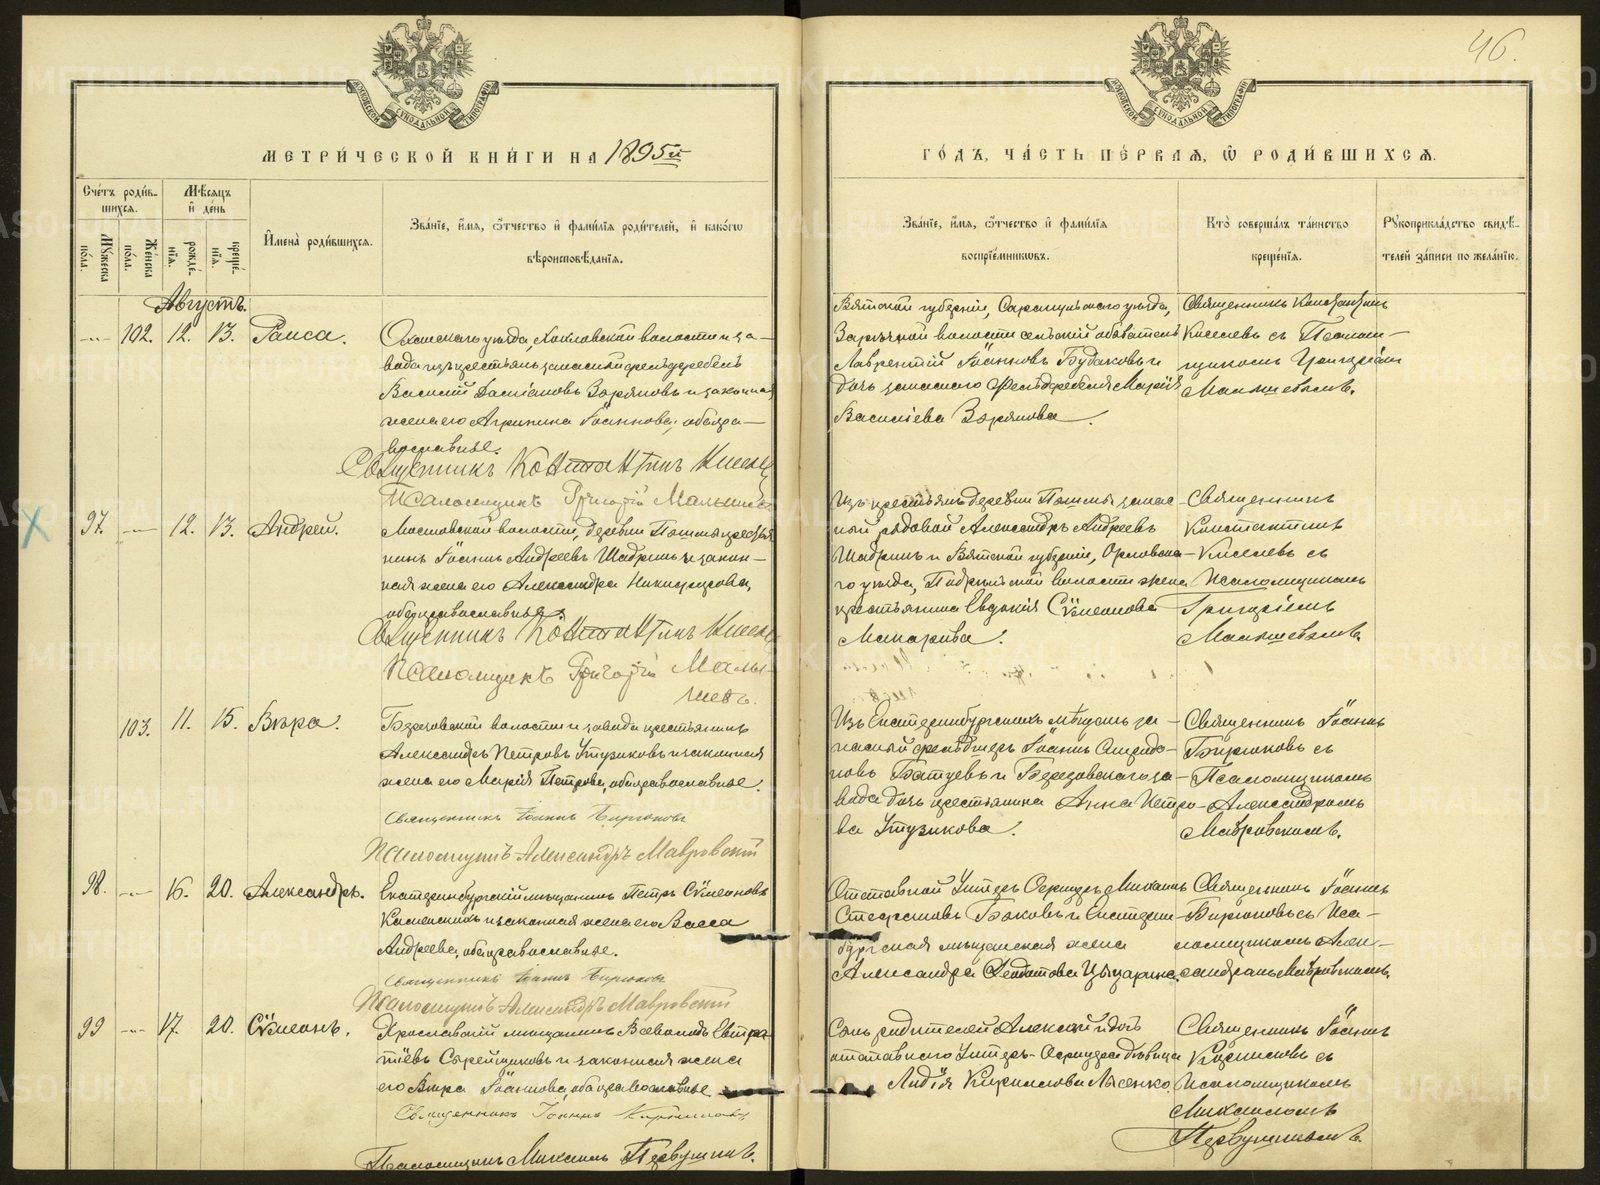 46.
МЕТРИ́ЧЕСКОЙ КНИ́ГИ НА 1895й
ГО́ДЪ, ЧА́СТЬ ПЕ́РВАЯ, Ѿ РОДИ́ВШИХСЯ.
Сче́тъ роди́в-
шихся.
Мѣ́сяцъ
и҆ де́нь
Мꙋ́жеска
по́ла.
Же́нска
по́ла.
рожде́-
нїѧ.
креще́-
нїѧ.
И҆мена̀ роди́вшихся.
Зва́нїе, и҆́мѧ, ѻ҆́тчество и҆ фами́лїѧ роди́телей, и҆ како́гѡ
вѣроисповѣ́данїѧ.
Зва́нїе, и҆́мѧ, ѻ҆́тчество и҆ фами́лїѧ
воспрїе́мникѡвъ.
Кто̀ соверша́лъ та́инство
креще́нїѧ.
Рꙋкоприкла́дство свидѣ́-
телей за́писи по жела́нїю.
Августъ.
102. 12. 13. Раиса.
вода изъ крестьянъ запасной фельдфебель
Василій Даміановъ Зоряновъ и законная
жена его Агрипина Іоаннова, оба пра-
вославные.
Священникъ Константинъ
Псаломщикъ Григорій
Вятской губерніи, Сарапульскаго уѣзда,
Зарѣчной волости сельскій обыватель
Лаврентій Іоанновъ Будаковъ и
дочь запаснаго фельдфебеля Марія
Василіева Зорянова.
Священникъ Константинъ
Киселевъ съ Псалом-
щикомъ Григоріемъ
Малышевымъ.
97. 12. 13. Андрей.
волости, деревни крестья
нинъ Іоаннъ Андреевъ Шадринъ и закон-
ная жена его Александра
оба православные.
Священникъ Константинъ
Псаломщикъ Григорій Малы-
шевъ.
Изъ крестьянъ деревни запас
ной рядовой Александръ Андреевъ
Шадринъ и Вятской губерніи, Орловска-
го уѣзда, волости жена
крестьянина Евдокія Сѵмеонова
Макарова.
Священникъ
Константинъ
Киселевъ съ
Псаломщикомъ
Григоріемъ
Малышевымъ.
103. 11. 15. Вѣра.
Березовской волости и завода крестьянинъ
Александръ Петровъ Утузиковъ и законная
жена его Марія Петрова, оба православные.
Священникъ Іоаннъ Бирюковъ
Псаломщикъ Александръ Мавровскій
Изъ Екатеринбургскихъ мѣщанъ за-
пасной фельдшеръ Іоаннъ
новъ и Березовскаго за-
вода дочь крестьянина Анна Петро-
ва Утузикова.
Священникъ Іоаннъ
Бирюковъ съ
Псаломщикомъ
Александромъ
Мавровскимъ.
98. 16. 20. Александръ.
Екатеринбургскій мѣщанинъ Петръ Сѵмеоновъ
Каменскихъ и законная жена его Васса
Андреева, оба православные.
Священникъ Іоаннъ Бирюковъ
Псаломщикъ Александръ Мавровскій
Отставной Унтеръ Офицеръ Михаилъ
Стефановъ Боковъ и Екатерин-
бургская мѣщанская жена
Александра
Священникъ Іоаннъ
Бирюковъ съ Пса-
ломщикомъ Алек-
сандромъ Мавровскимъ.
99 17. 20. Сѵмеонъ.
Ярославскій мѣщанинъ Всеволодъ Евтра-
тіевъ Сырейщиковъ и законная жена
его Вѣра Іоаннова, оба православные
Священникъ Іоаннъ
Псаломщикъ Михаилъ Первушинъ.
Сынъ родителей Алексѣй и дочь
отставнаго Унтеръ-Офицера дѣвица
Лидія Кириллова Лысенко
Священникъ Іоаннъ
съ
Псаломщикомъ
Михаиломъ
Первушинымъ.